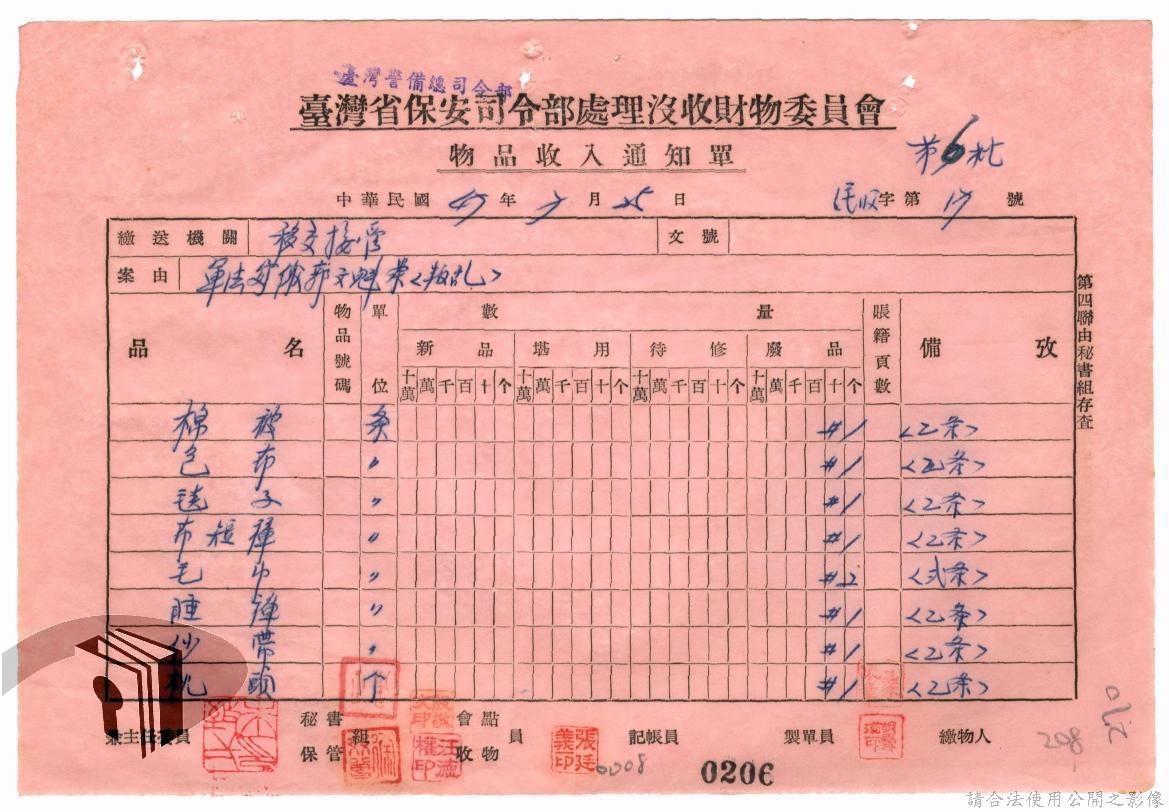 臺灣警備總司令部
臺灣省保安司令部處理沒收財物委員會
物品收入通知單
第6批
中華民國 年 月 日
字第 號
繳送機關 移交接管 文號
案由 軍法 案<叛乱>
第四聯由秘書組存查
品名 物品號碼 單位 數量 賬籍頁數 備攷
新品 堪用 待修 廢品
十萬 萬 千 百 十 个 十萬 萬 千 百 十 个 十萬 萬 千 百 十 个 十萬 萬 千 百 十 个
棉被 条 #1 <乙条>
包布 〃 #1 <乙条>
毯子 〃 #1 <乙条>
布短褲 〃 #1 <乙条>
毛巾 〃 #2 <弍条>
睡褲 〃 #1 <乙条>
紗帶 〃 #1 <乙条>
枕頭 个 #1
兼主任委員 秘書組 保管 會點 收物 員 張廷義印 記帳員 製單員 繳物人
0008
0206
208
請合法使用公開之影像